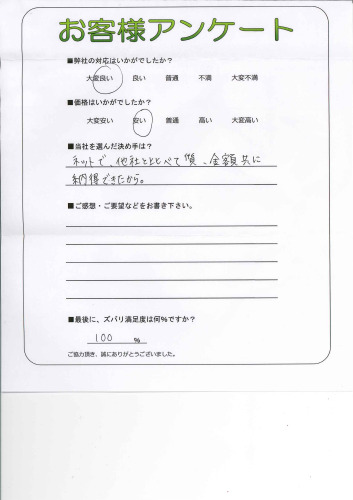 お客様アンケート
■弊社の対応はいかがでしたか？
大変良い 良い 普通 不満 大変不満
■価格はいかがでしたか？
大変安い 安い 普通 高い 大変高い
■当社を選んだ決め手は？
ネットで、他社とくらべて質、金額共に
納得できたから。
■ご感想・ご要望などをお書き下さい。
■最後に、ズバリ満足度は何％ですか？
100 %
ご協力頂き、誠にありがとうございました。